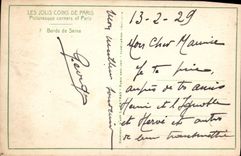 LES JOLIS COINS DE PARIS
Picturesque corners of Paris
7 Bords de Seine
13-2-29
Mon Cher Maurice
Je te prie
auprès de tes amis
Henri et
et Hervé et autres
de leur transmettre
mon meilleur souvenir